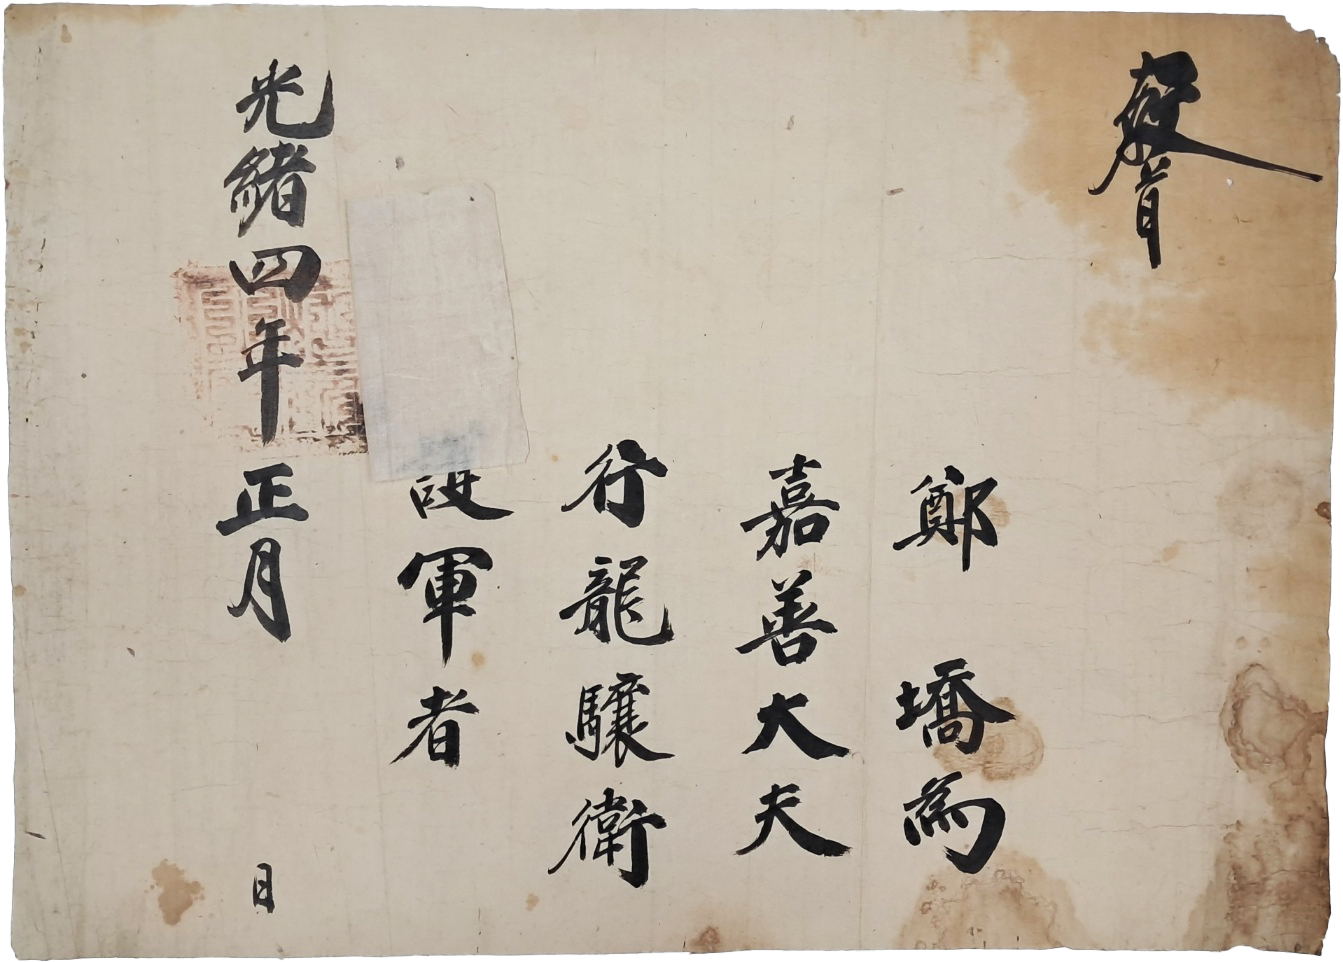 敎旨
鄭 𡑭為
嘉善大夫
行龍驤衛
軍者
光緒四年正月 日